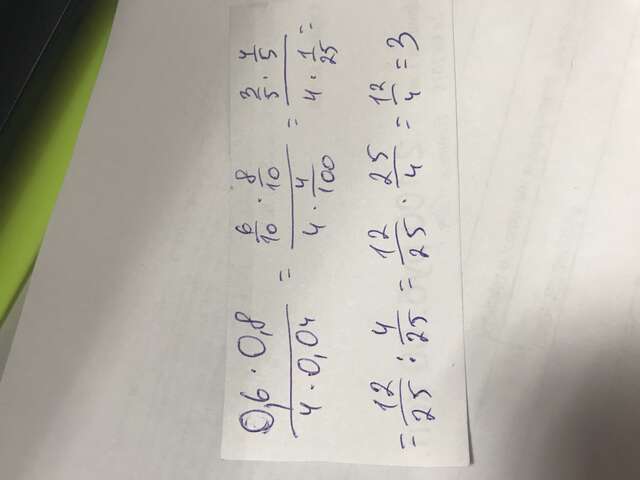 0,6 · 0,8 / 4 · 0,04 = 6/10 · 8/10 / 4 · 4/100 = 3/5 · 4/5 / 4 · 1/25 =
= 12/25 : 4/25 = 12/25 · 25/4 = 12/4 = 3